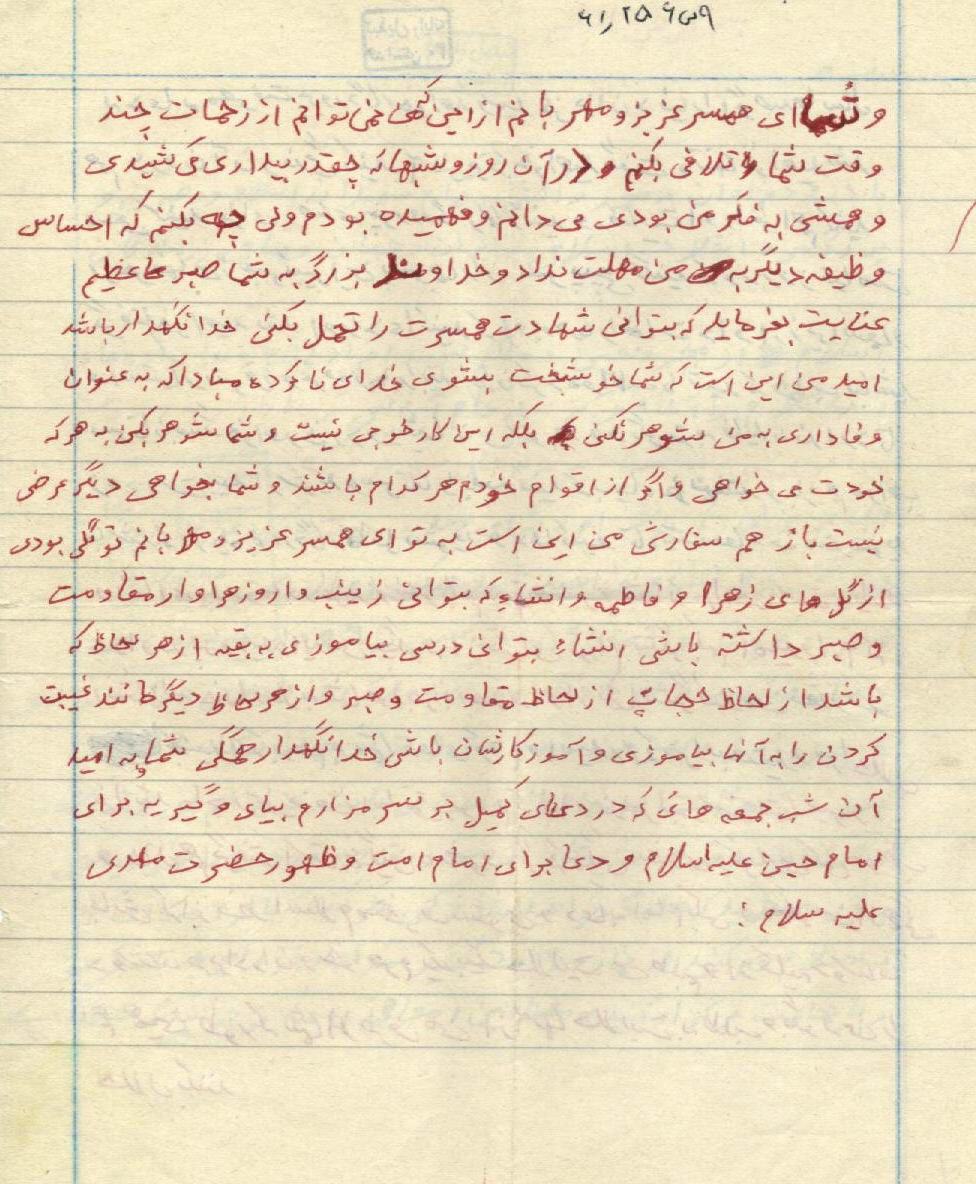 و شما ای همسر عزیز و مهربانم از این که نمی توانم از زحمات چند
وقت شما تلافی بکنم و در آن روز و شبها که چقدر بیداری می کشیدی
و همیشی به فکر من بودی می دانم و فهمیده بودم ولی چه بکنم که احساس
وظیفه دیگر به من مهلت نداد و خداوند بزرگ به شما صبر عظیم
عنایت بفرماید که بتوانی شهادت همسرت را تحمل بکنی خدا نگهدار باشد
امید من این است که شما خوشبخت بشوی خدای ناکرده مبادا که به عنوان
وفاداری به من شوهر نکنی بلکه این کار خوبی نیست و شما شوهر بکن به هر که
خودت می خواهی و اگر از اقوام خودم هر کدام باشند و شما بخواهی دیگر عرضی
نیست باز هم سفارش من این است به تو ای همسر عزیز و مهربانم تو گلی بودی
از گل های زهرا و فاطمه و انشاء که بتوانی زینب وار و زهرا وار مقاومت
و صبر داشته باشی انشاء بتوانی درسی بیاموزی به بقیه از هر لحاظ که
باشد از لحاظ حجاب از لحاظ مقاومت و صبر و از هر لحاظ دیگر مانند غیبت
کردن را به آنها بیاموزی و آموزگارشان باشی خدا نگهدار همگی شما به امید
آن شب جمعه هائی که در دعای کمیل بر سر مزارم بیای و گیریه برای
امام حسین علیه اسلام و دعا برای امام امت و ظهور حضرت مهدی
علیه سلام :